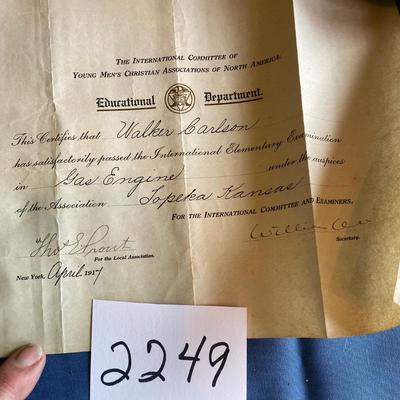 THE INTERNATIONAL COMMITTEE OF
YOUNG MEN'S CHRISTIAN ASSOCIATIONS OF NORTH AMERICA.
Educational Department.
This Certifies that Walker Carlson
has satisfactorily passed the International Elementary Examination
in Gas Engine under the auspices
of the Association Topeka Kansas
FOR THE INTERNATIONAL COMMITTEE AND EXAMINERS,
Thos E Prout
William
For the Local Association.
Secretary.
New York, April 1917
2249